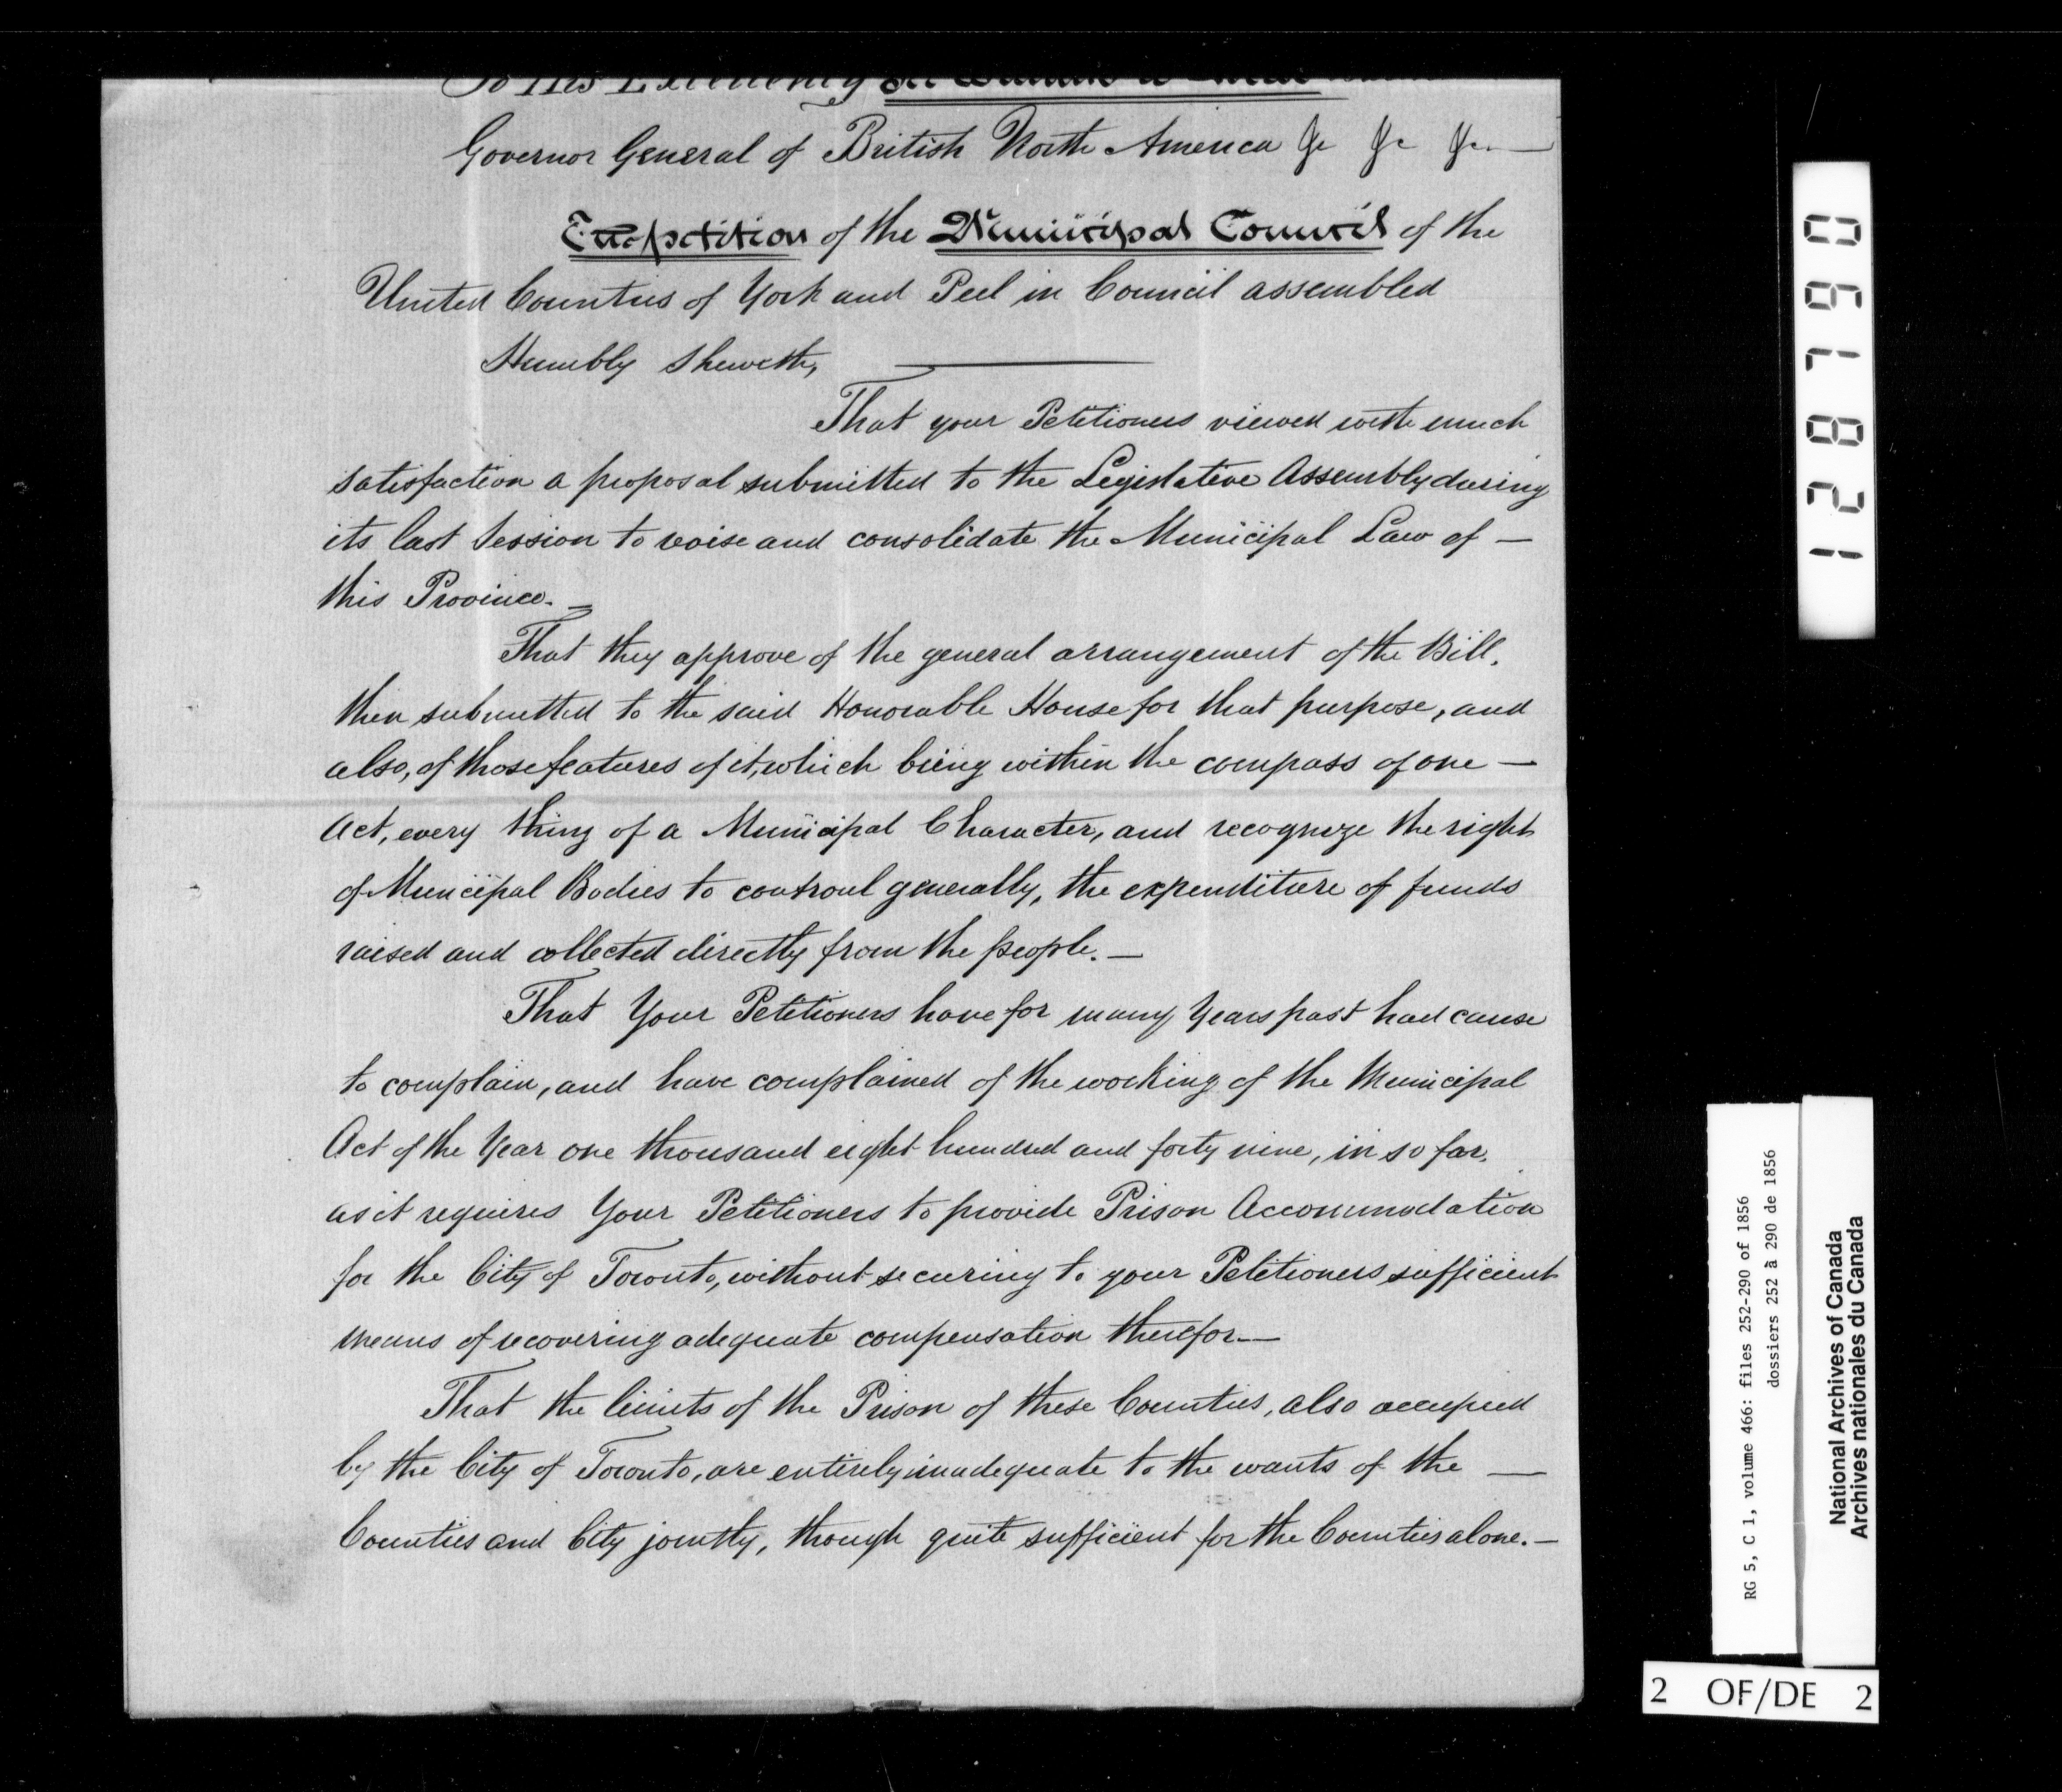 To His Excellency Sir
Governor General of British North America &c &c &c
The petition of the Municipal Council of the
United Counties of York and Peel in Council assembled
Humbly Sheweth,
That your Petitioners viewed with much
satisfaction a proposal submitted to the Legislative Assembly during
its last Session to revise and consolidate the Municipal Law of —
this Province. —
That they approve of the general arrangement of the Bill,
then submitted to the said Honorable House for that purpose, and
also, of those features of it, which bring within the compass of one —
Act, every thing of a Municipal Character, and recognize the right
of Municipal Bodies to controul generally, the expenditure of funds
raised and collected directly from the people. —
That Your Petitioners have for many Years past had cause
to complain, and have complained of the working of the Municipal
Act of the Year one thousand eight hundred and forty nine, in so far,
as it requires Your Petitioners to provide Prison Accommodation
for the City of Toronto, without securing to your Petitioners sufficient
means of recovering adequate compensation therefor —
That the limits of the Prison of these Counties, also occupied
by the City of Toronto, are entirely inadequate to the wants of the —
Counties and City jointly, though quite sufficient for the Counties alone. —
128790
RG 5, C 1, volume 466: files 252-290 of 1856
dossiers 252 à 290 de 1856
National Archives of Canada
Archives nationales du Canada
2 OF/DE 2